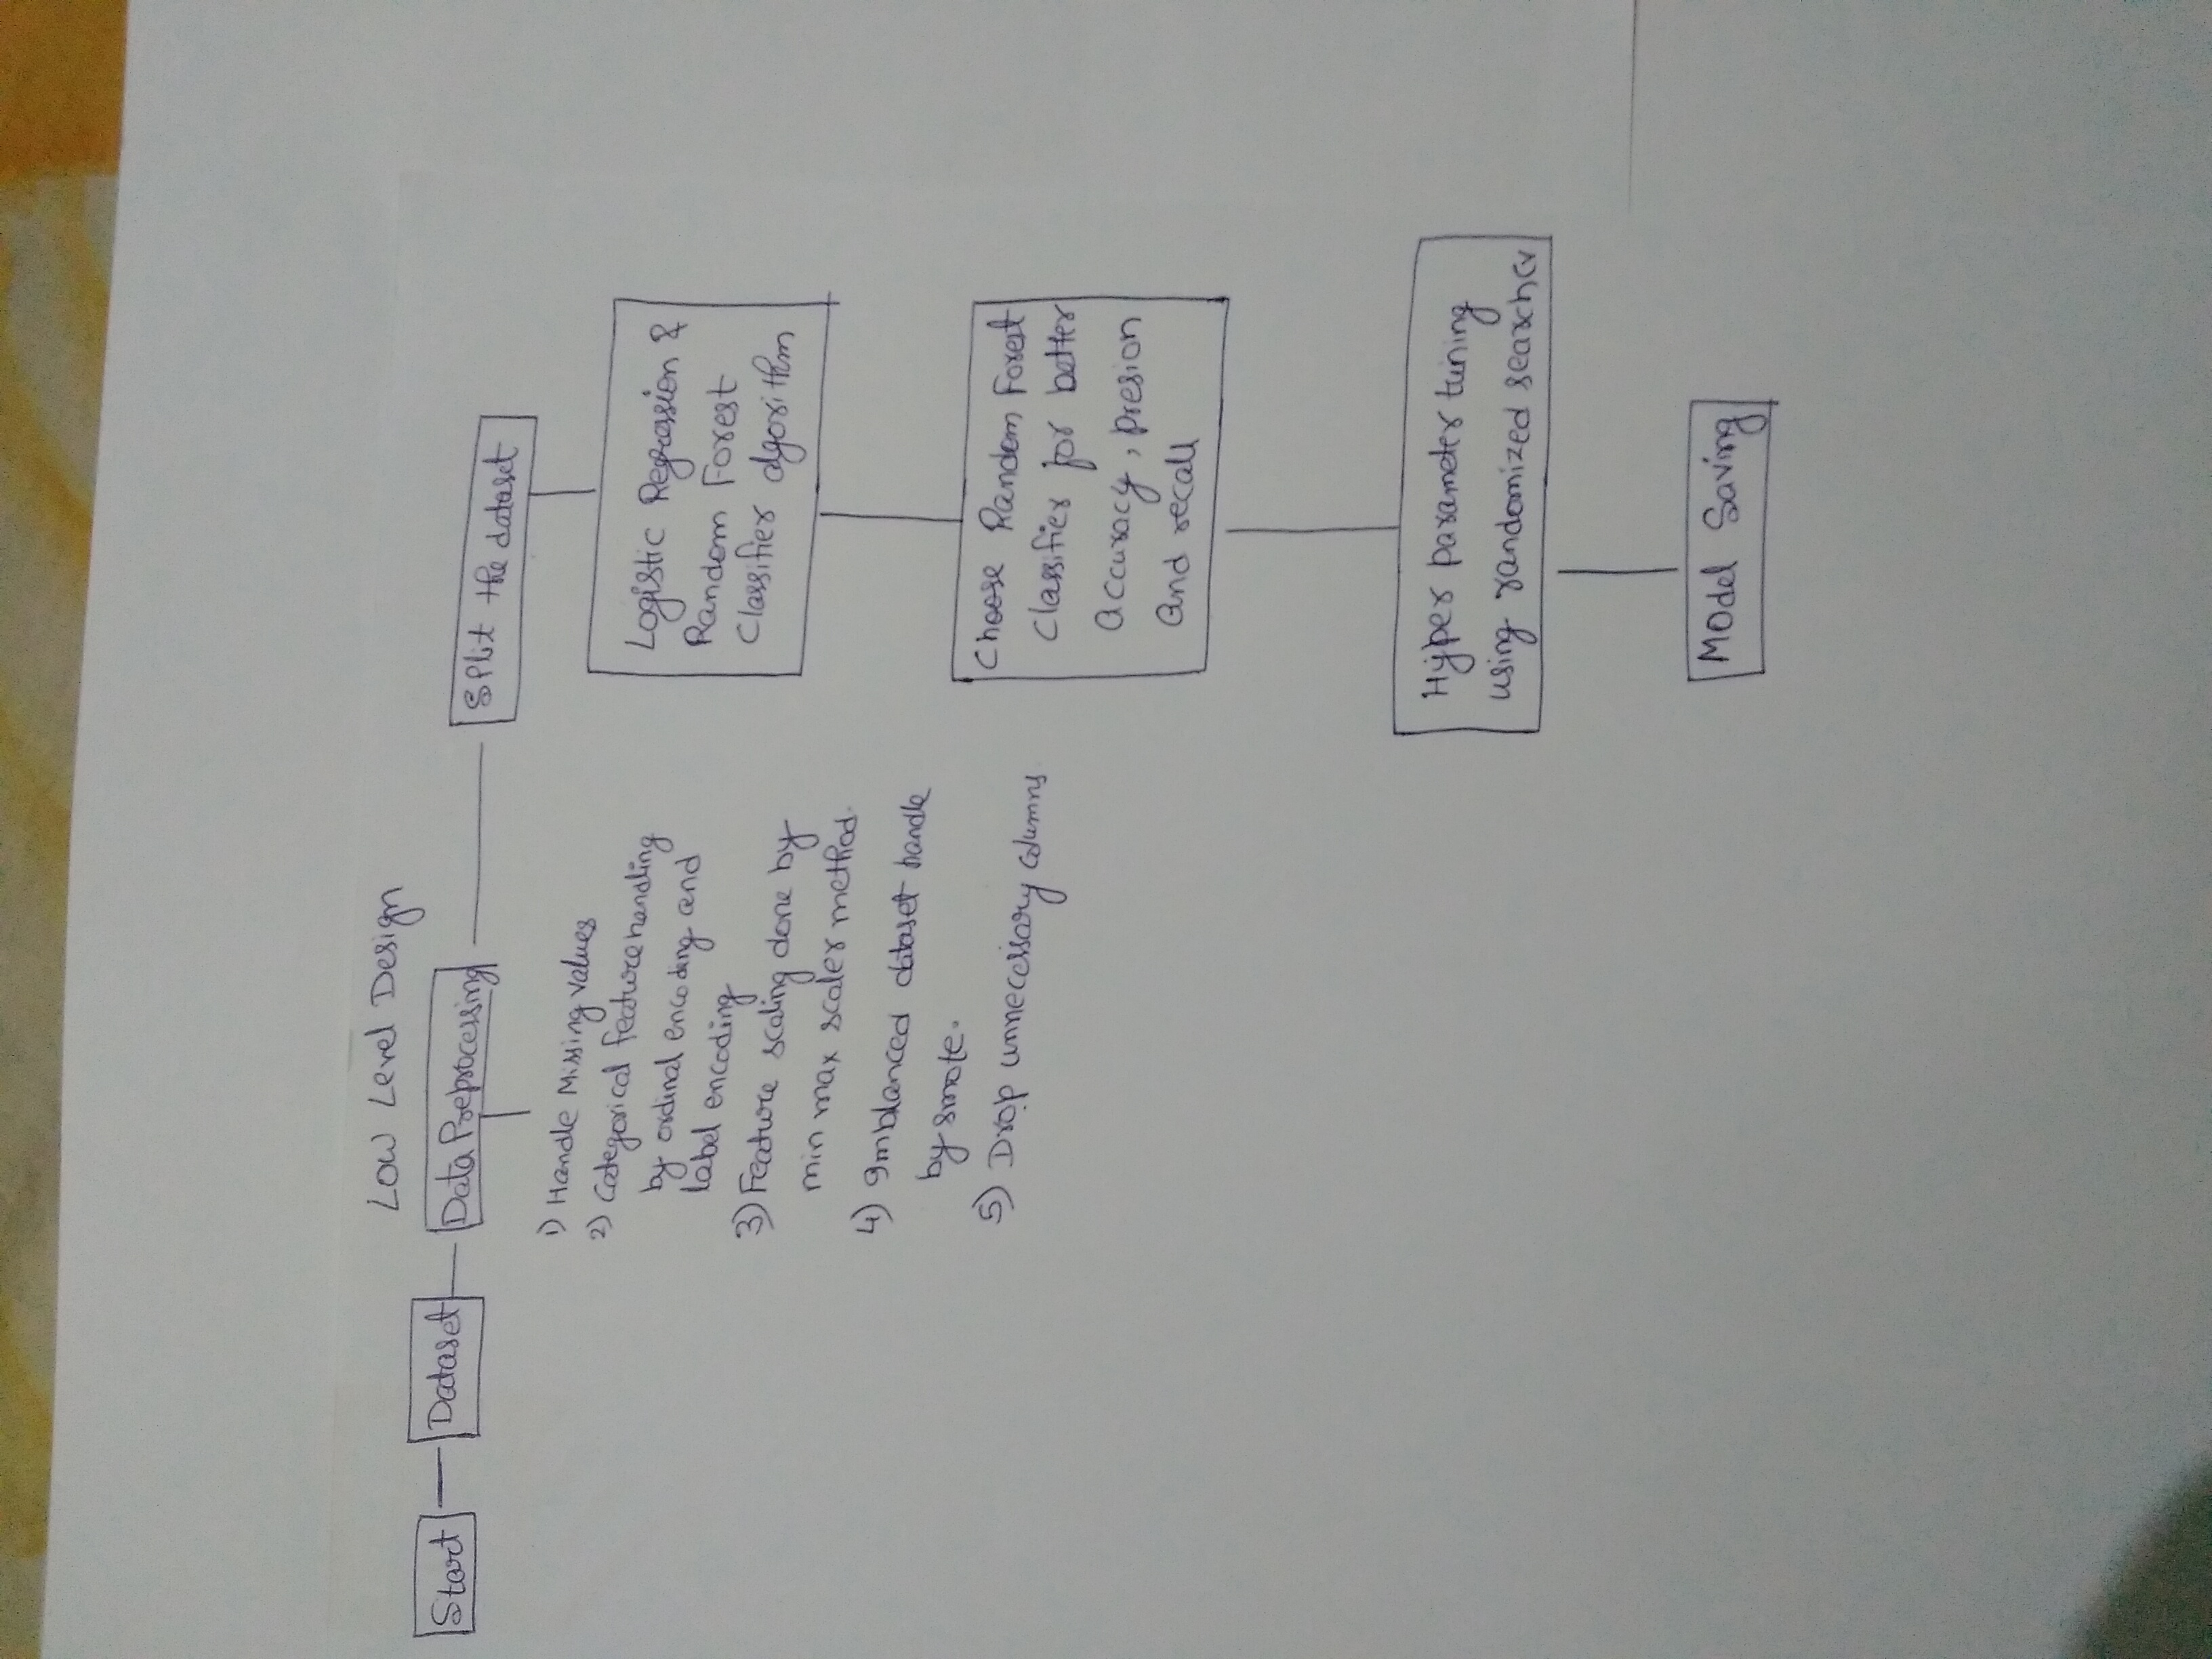 Low Level Design
Start
Dataset
Data Preprocessing
Split the dataset
1) Handle Missing values
2) Categorical feature handling
by ordinal encoding and
label encoding
3) Feature scaling done by
min max scaler method.
4) Imblanced dataset handle
by smote.
5) Drop unnecessary columns
Logistic Regression &
Random Forest
Classifier algorithm
Choose Random Forest
Classifier for better
Accuracy, presion
and recall
Hyper parameter tuning
using randomized search cv
Model Saving